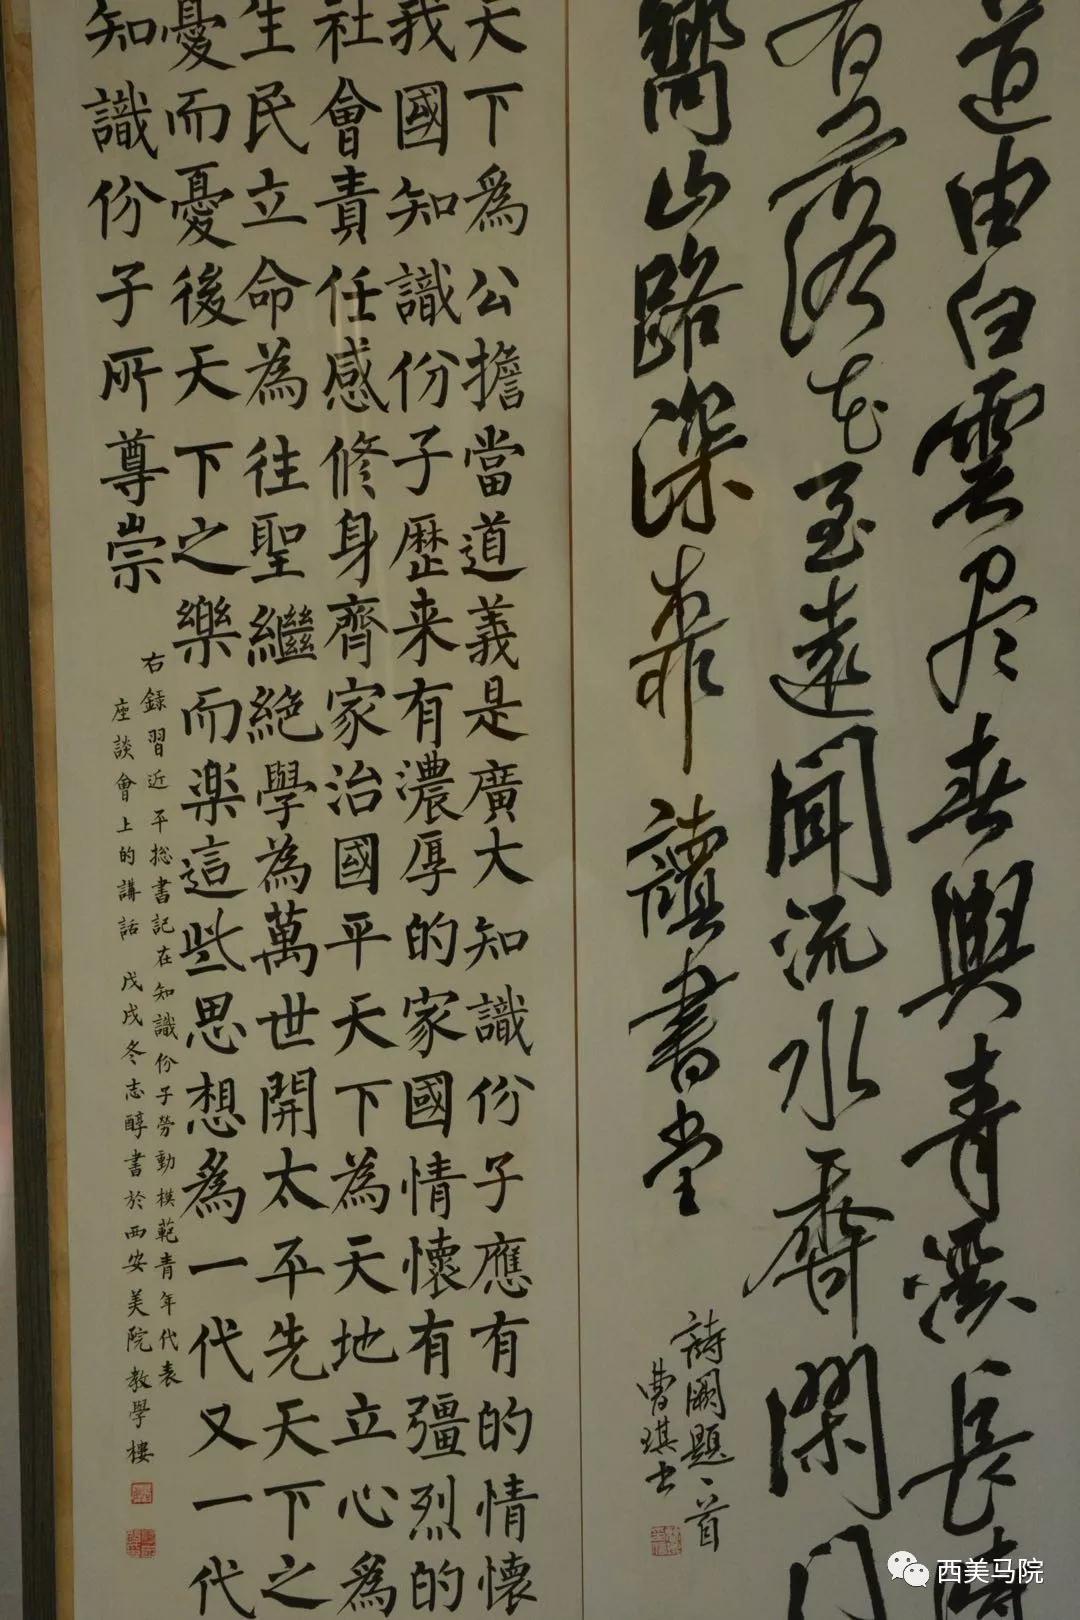 道由白雲盡春與青溪長時
有落花至遠聞流水香閑門
嚮山路深柳讀書堂
詩闕題一首
曹琪书
天下爲公擔當道義是廣大知識份子應有的情懷
我國知識份子歷来有濃厚的家國情懷有彊烈的
社會責任感修身齊家治國平天下為天地立心爲
生民立命為往聖繼絶學為萬世開太平先天下之
憂而憂後天下之樂而楽這些思想爲一代又一代
知識份子所尊崇
右録習近平総書記在知識份子勞動模範青年代表
座談會上的講話 戊戌冬志醇書於西安美院教學樓
西美马院